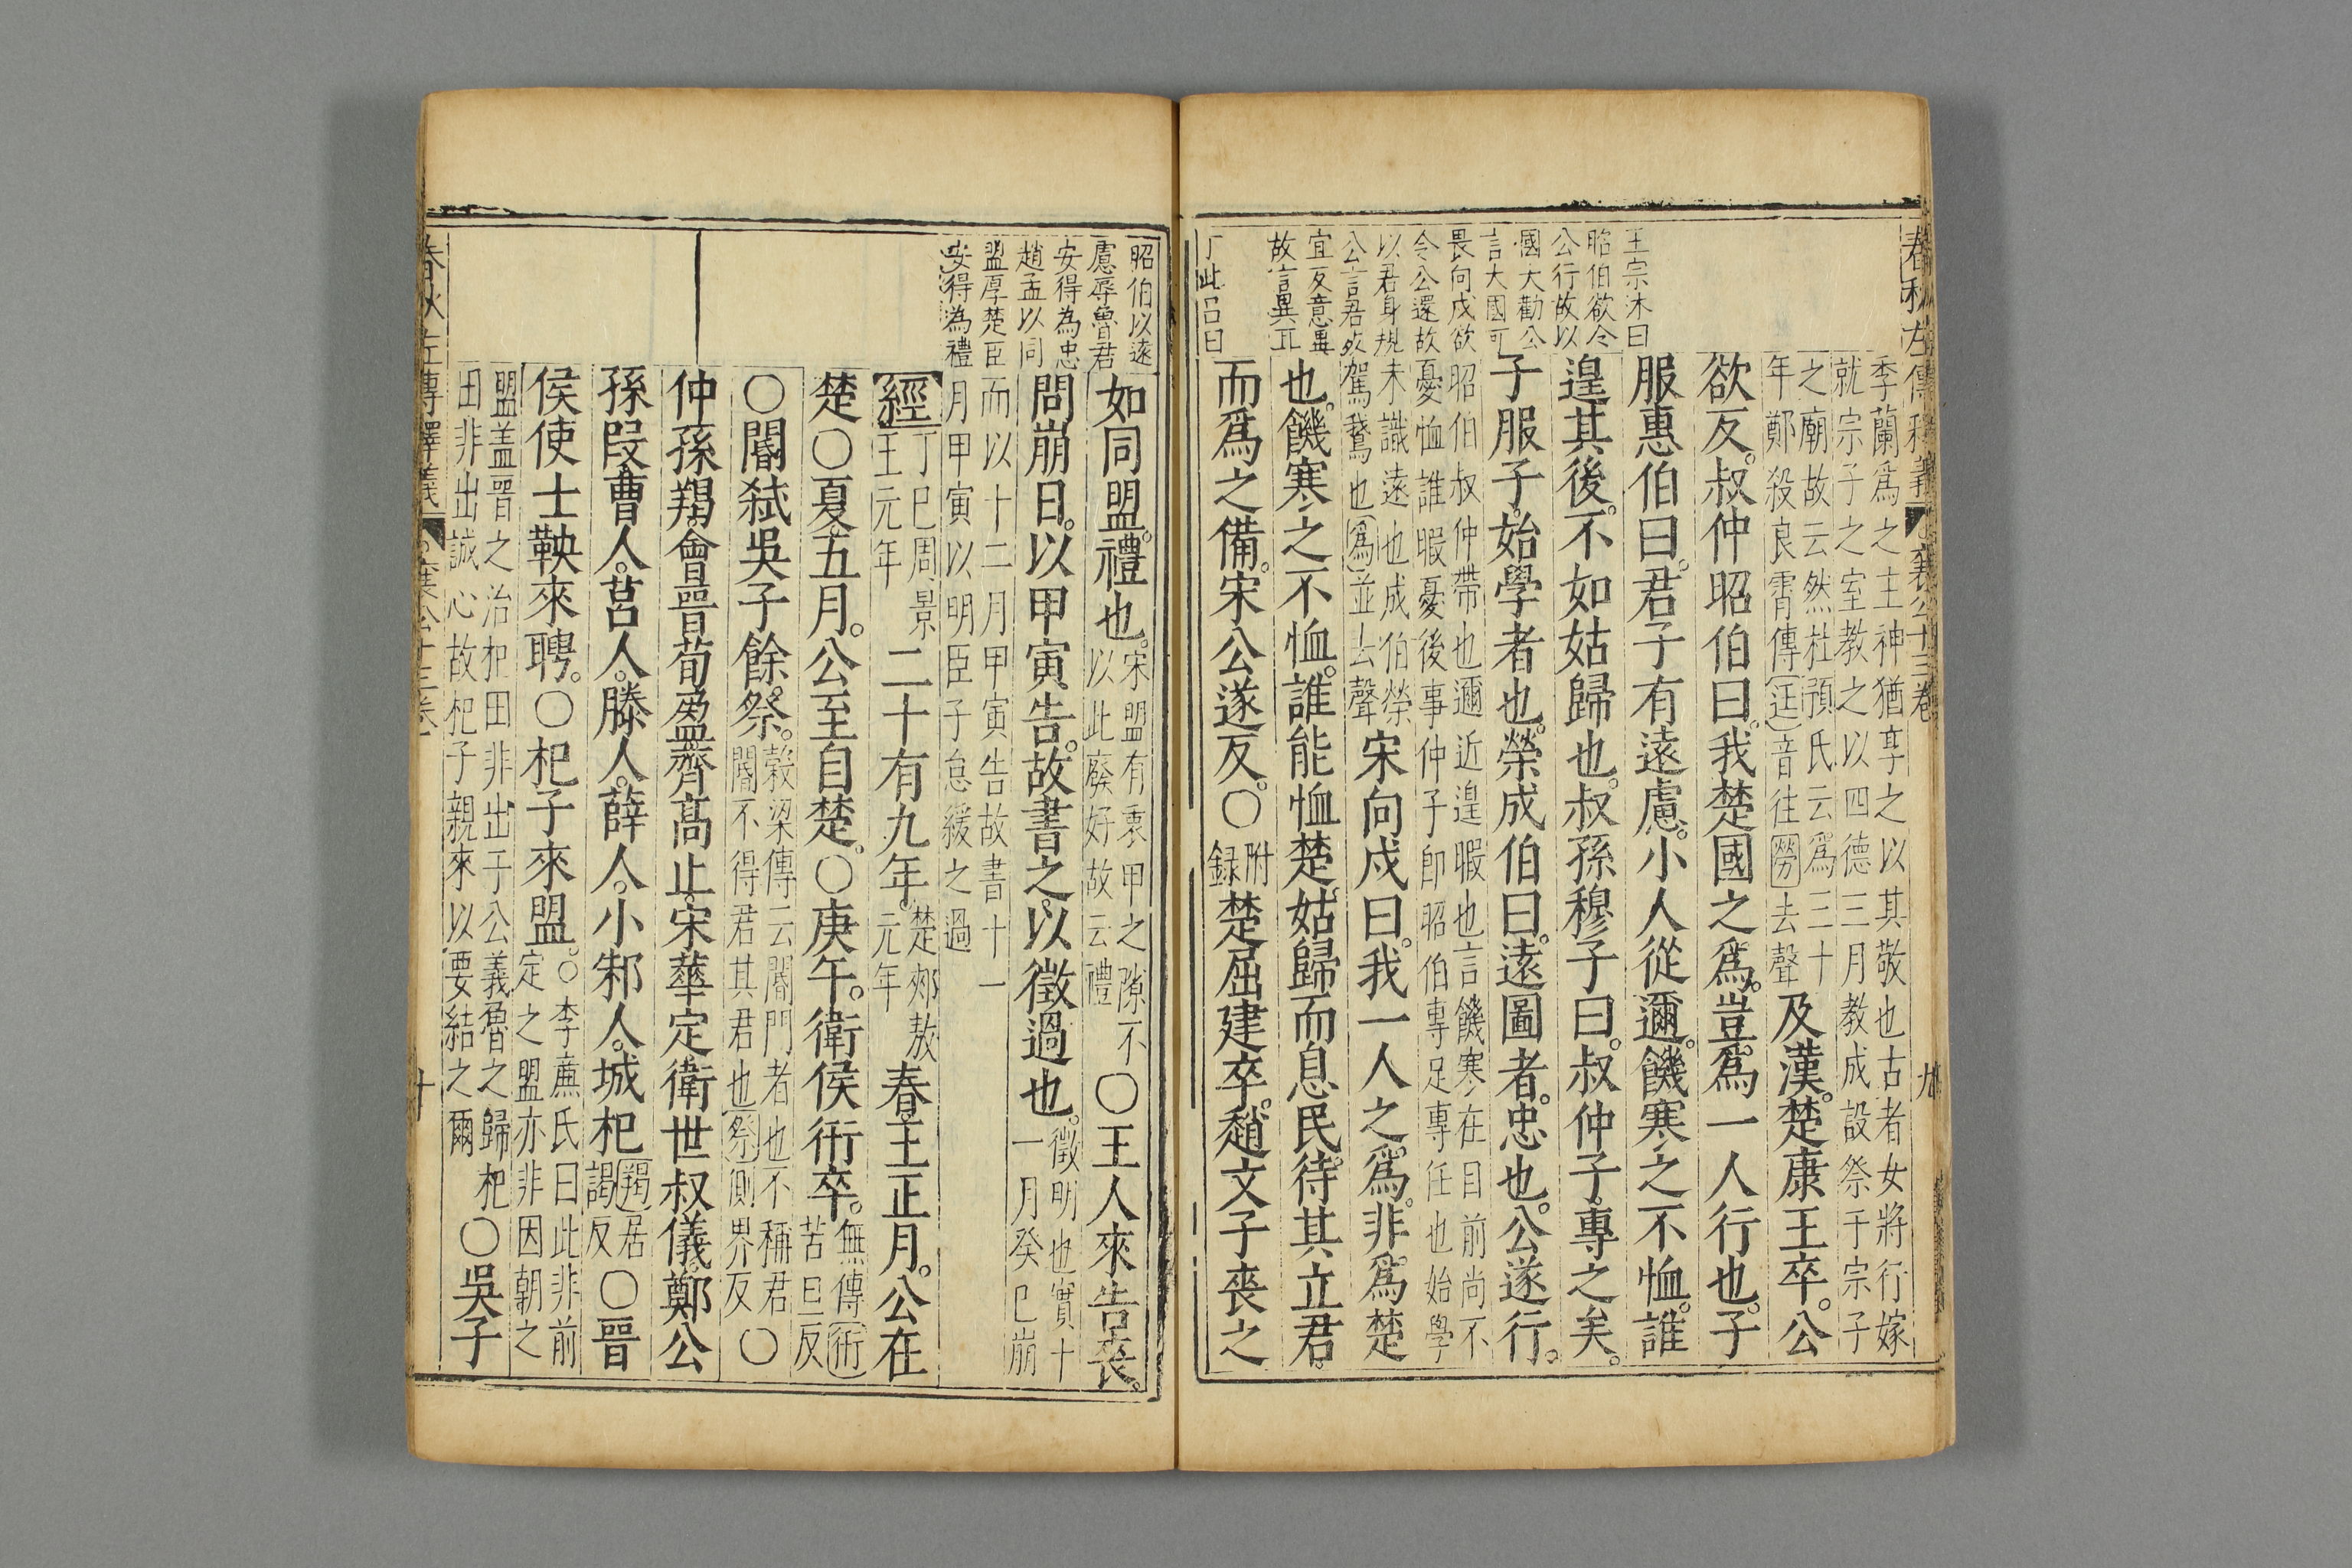 春秋左傳釋義 襄公十三卷 九
王宗沐曰
昭伯欲令
公行故以
國大勸公
言大國可
畏向戌欲
令公還故
以君身規
公言君歿
宜反意異
故言異耳
丁此呂曰
季蘭爲之主神猶享之以其敬也古者女將行嫁
就宗子之室教之以四德三月教成設祭于宗子
之廟故云然杜預氏云爲三十
年鄭殺良霄傳(迋)音往勞去聲
及漢楚康王卒。公
欲反。叔仲昭伯曰。我楚國之爲。豈爲一人行也。子
服惠伯曰。君子有遠慮。小人從邇。饑寒之不恤。誰
遑其後。不如姑歸也。叔孫穆子曰。叔仲子專之矣。
子服子。始學者也。榮成伯曰。遠圖者。忠也。公遂行。
昭伯叔仲帶也邇近遑暇也言饑寒在目前尚不
憂恤誰暇憂後事仲子即昭伯專足專任也始學
未識遠也成伯榮
駕鵞也(爲)並去聲
宋向戌曰。我一人之爲。非爲楚
也。饑寒之不恤。誰能恤楚。姑歸而息民。待其立君。
而爲之備。宋公遂反。〇附錄楚屈建卒。趙文子喪之
昭伯以遠
慮辱魯君
安得為忠
趙孟以同
盟厚楚臣
安得為禮
如同盟。禮也。宋盟有衷甲之隙不
以此廢好故云禮
〇王人來告喪。
問崩日。以甲寅告。故書之。以徵過也。徵明也實十
一月癸巳崩
而以十二月甲寅告故書十一
月甲寅以明臣子怠緩之過
經 丁巳周景
王元年
二十有九年。楚郟敖
元年
春。王正月。公在
楚〇夏五月。公至自楚。〇庚午。衛侯衎卒。無傳(衎)
苦旦反
〇閽弑吳子餘祭。穀梁傳云閽門者也不稱君
閽不得君其君也(祭)側界反
〇
仲孫羯。會晉荀盈齊高止。宋華定衛世叔儀。鄭公
孫段曹人。莒人。滕人。薛人。小邾人。城杞(羯)居
謁反
〇晉
侯使士鞅來聘。〇杞子來盟。〇李廉氏曰此非前
定之盟亦非因朝之
盟盖晉之治杞田非出于公義魯之歸杞
田非出誠心故杞子親來以要結之爾
〇吳子
春秋左傳釋義 襄公十三卷 十